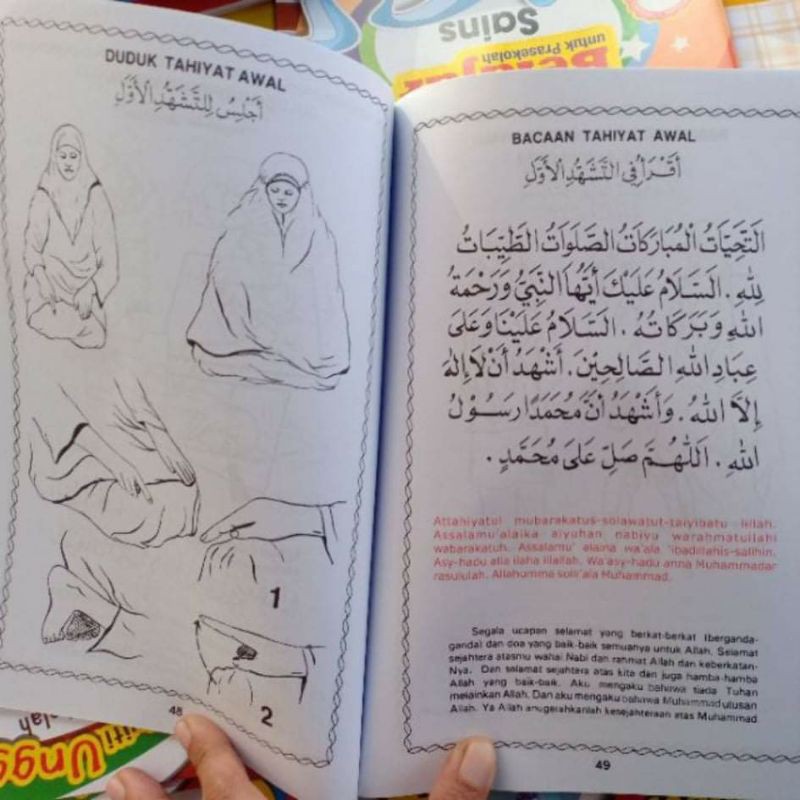 Sains
untuk Prasekolah
Belajar
DUDUK TAHIYAT AWAL
أَجْلِسُ لِلتَّشَهُّدِ الْأَوَّلِ
1
2
48
BACAAN TAHIYAT AWAL
أَقْرَأُ فِي التَّشَهُّدِ الْأَوَّلِ
اَلتَّحِيَّاتُ الْمُبَارَكَاتُ الصَّلَوَاتُ الطَّيِّبَاتُ
لِلّٰهِ . اَلسَّلَامُ عَلَيْكَ أَيُّهَا النَّبِيُّ وَرَحْمَةُ
اللهِ وَبَرَكَاتُهُ . اَلسَّلَامُ عَلَيْنَا وَعَلَى
عِبَادِ اللهِ الصَّالِحِيْنَ . أَشْهَدُ أَنْ لَا إِلٰهَ
إِلَّا اللهُ . وَأَشْهَدُ أَنَّ مُحَمَّدًا رَسُوْلُ
اللهِ . اَللّٰهُمَّ صَلِّ عَلَى مُحَمَّدٍ .
Attahiyatul mubarakatus-solawatut-taiyibatu lillah.
Assalamu'alaika aiyuhan nabiyu warahmatullahi
wabarakatuh. Assalamu' alaina wa'ala 'ibadillahis-salihin.
Asy-hadu alla ilaha illallah. Wa'asy-hadu anna Muhammadar
rasulullah. Allahumma solli'ala Muhammad.
Segala ucapan selamat yang berkat-berkat (berganda-
ganda) dan doa yang baik-baik semuanya untuk Allah. Selamat
sejahtera atasmu wahai Nabi dan rahmat Allah dan keberkatan-
Nya. Dan selamat sejahtera atas kita dan juga hamba-hamba
Allah yang baik-baik. Aku mengaku bahawa tiada Tuhan
melainkan Allah. Dan aku mengaku bahawa Muhammad utusan
Allah. Ya Allah anugerahkanlah kesejahteraan atas Muhammad.
49